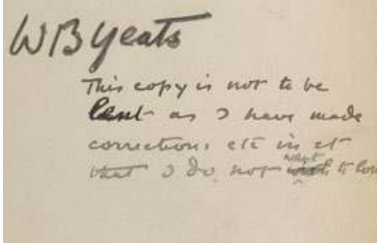 WB Yeats
This copy is not to be
lent as I have made
corrections etc in it
that I do not want to